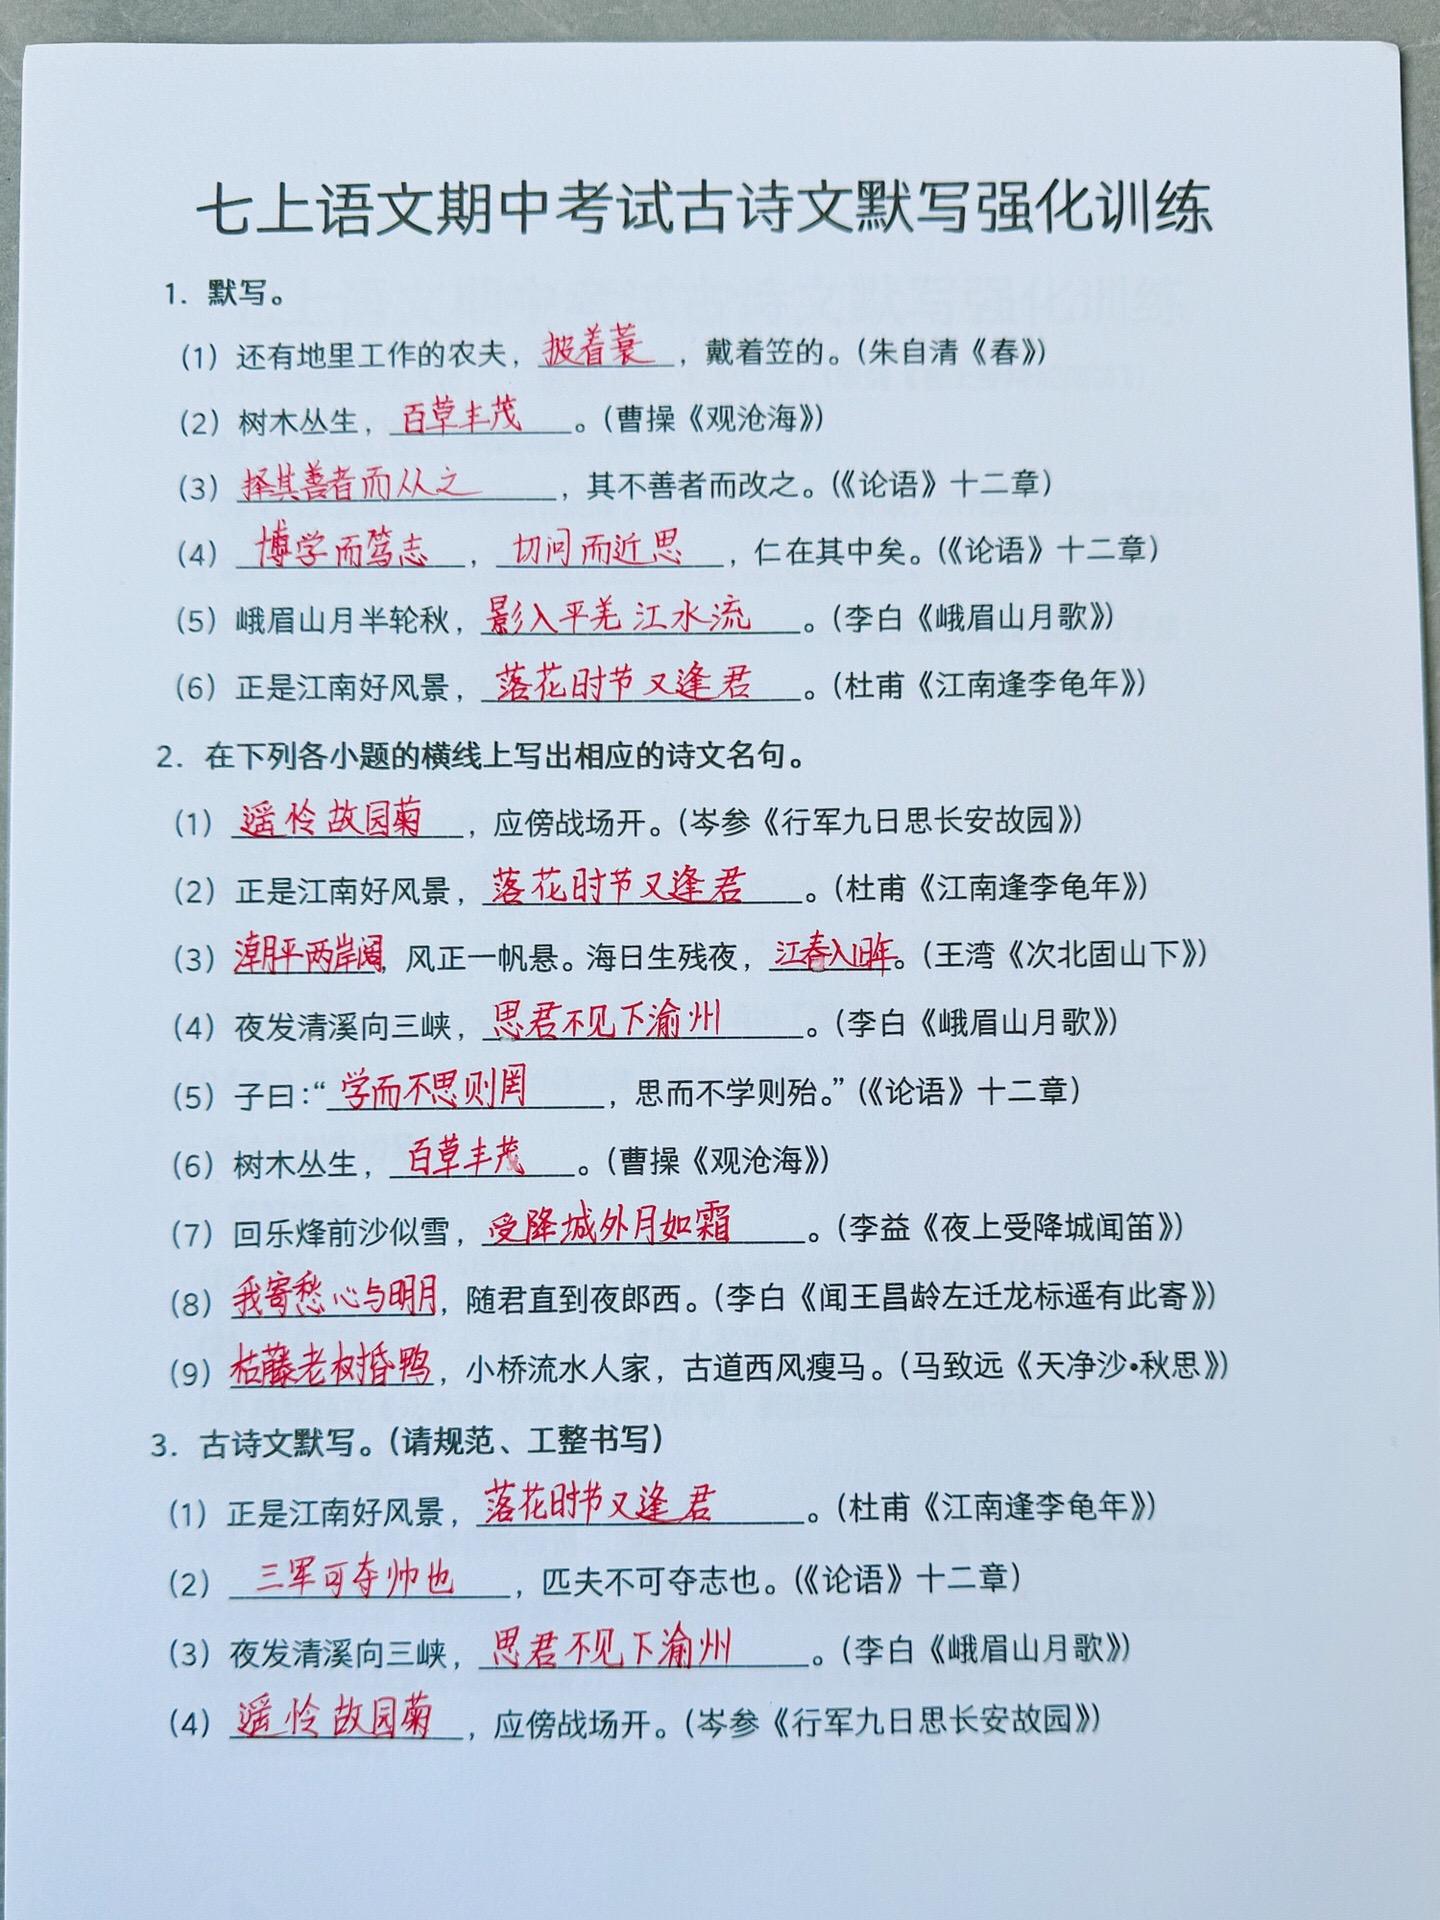 七上语文期中考试古诗文默写强化训练
1. 默写。
（1）还有地里工作的农夫，披着蓑，戴着笠的。（朱自清《春》）
（2）树木丛生，百草丰茂。（曹操《观沧海》）
（3）择其善者而从之，其不善者而改之。（《论语》十二章）
（4）博学而笃志，切问而近思，仁在其中矣。（《论语》十二章）
（5）峨眉山月半轮秋，影入平羌江水流。（李白《峨眉山月歌》）
（6）正是江南好风景，落花时节又逢君。（杜甫《江南逢李龟年》）
2. 在下列各小题的横线上写出相应的诗文名句。
（1）遥怜故园菊，应傍战场开。（岑参《行军九日思长安故园》）
（2）正是江南好风景，落花时节又逢君。（杜甫《江南逢李龟年》）
（3）潮平两岸阔，风正一帆悬。海日生残夜，江春入旧年。（王湾《次北固山下》）
（4）夜发清溪向三峡，思君不见下渝州。（李白《峨眉山月歌》）
（5）子曰：“学而不思则罔，思而不学则殆。”（《论语》十二章）
（6）树木丛生，百草丰茂。（曹操《观沧海》）
（7）回乐烽前沙似雪，受降城外月如霜。（李益《夜上受降城闻笛》）
（8）我寄愁心与明月，随君直到夜郎西。（李白《闻王昌龄左迁龙标遥有此寄》）
（9）枯藤老树昏鸭，小桥流水人家，古道西风瘦马。（马致远《天净沙•秋思》）
3. 古诗文默写。（请规范、工整书写）
（1）正是江南好风景，落花时节又逢君。（杜甫《江南逢李龟年》）
（2）三军可夺帅也，匹夫不可夺志也。（《论语》十二章）
（3）夜发清溪向三峡，思君不见下渝州。（李白《峨眉山月歌》）
（4）遥怜故园菊，应傍战场开。（岑参《行军九日思长安故园》）